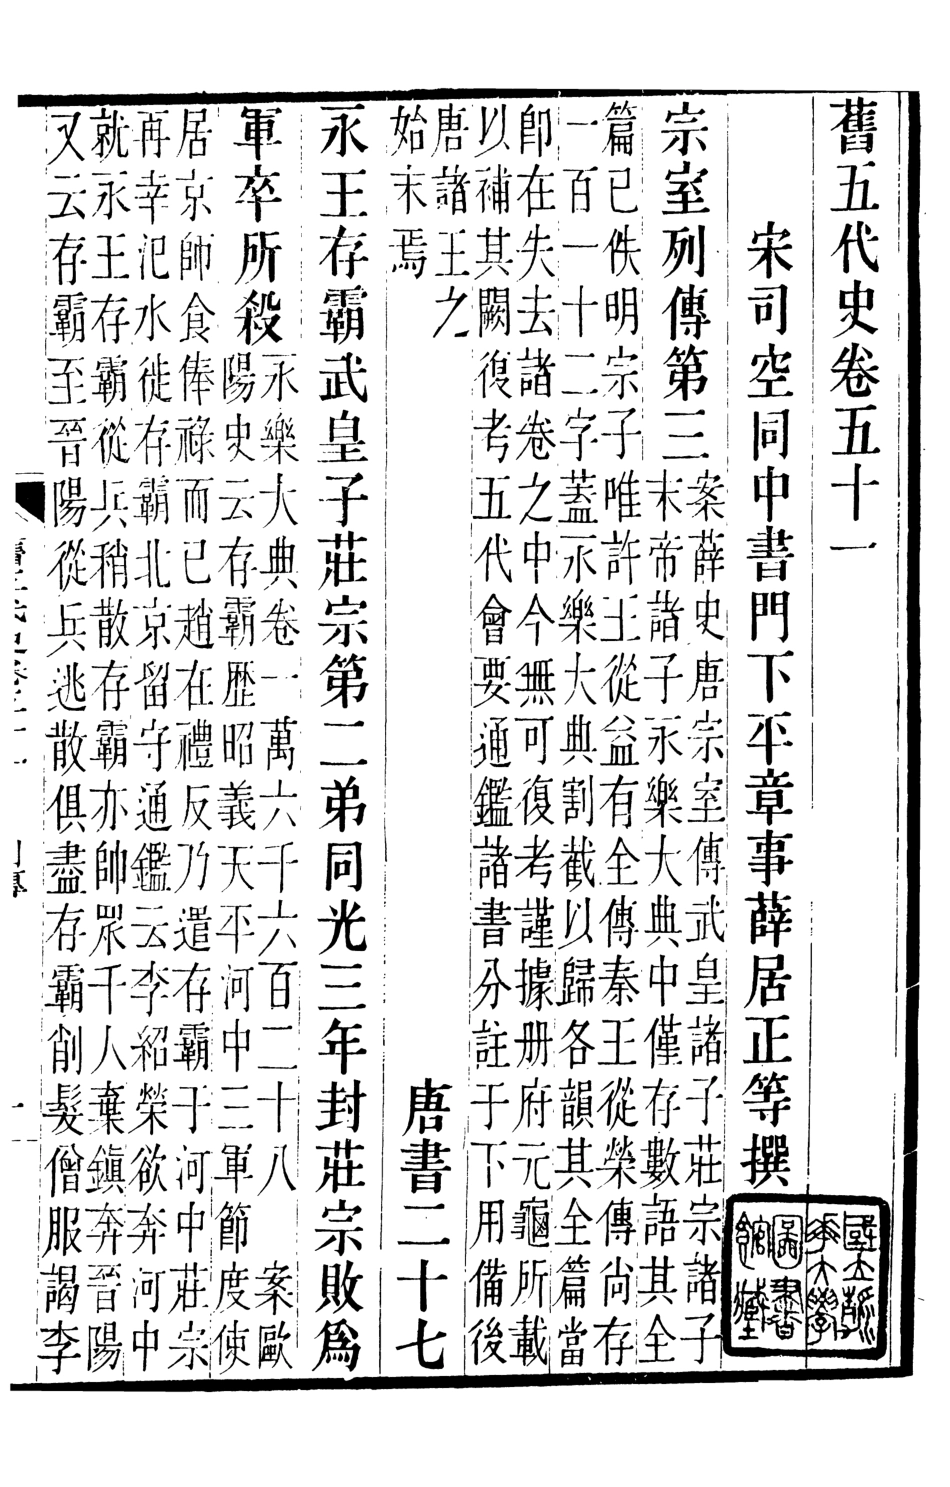 舊五代史卷五十一
宋司空同中書門下平章事薛居正等撰
國立浙
江大學
圖書
館藏
宗室列傳第三
案薛史唐宗室傳武皇諸子莊宗諸子
末帝諸子永樂大典中僅存數語其全
篇已佚明宗子唯許王從益有全傳秦王從榮傳尚存
一百一十二字蓋永樂大典割截以歸各韻其全篇當
卽在失去諸卷之中今無可復考謹據册府元龜所載
以補其闕復考五代會要通鑑諸書分註于下用備後
唐諸王之
始末焉
唐書二十七
永王存霸武皇子莊宗第二弟同光三年封莊宗敗爲
軍卒所殺
永樂大典卷一萬六千六百二十八 案歐
陽史云存霸歷昭義天平河中三軍節度使
居京師食俸祿而已趙在禮反乃遣存霸于河中莊宗
再幸汜水徙存霸北京留守通鑑云李紹榮欲奔河中
就永王存霸從兵稍散存霸亦帥眾千人棄鎮奔晉陽
又云存霸至晉陽從兵逃散俱盡存霸削髮僧服謁李